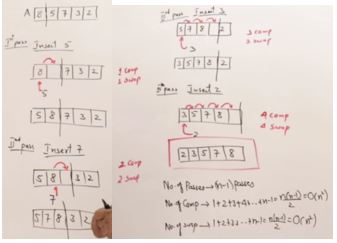 A 8 5 7 3 2
Ist pass Insert 5
8 7 3 2
5
1 Comp
1 Swap
5 8 7 3 2
IInd pass Insert 7
5 8 3 2
7
2 Comp
2 Swap
5 7 8 3 2
pass Insert 3
5 7 8 2
3
3 Comp
3 Swap
3 5 7 8 2
pass Insert 2
3 5 7 8
2
4 Comp
4 Swap
2 3 5 7 8
No. of Passes → (n-1) passes
No. of Comp → 1+2+3+4+... n-1 = n(n-1)/2 = O(n²)
No. of swap → 1+2+3+... n-1 = n(n-1)/2 = O(n²)